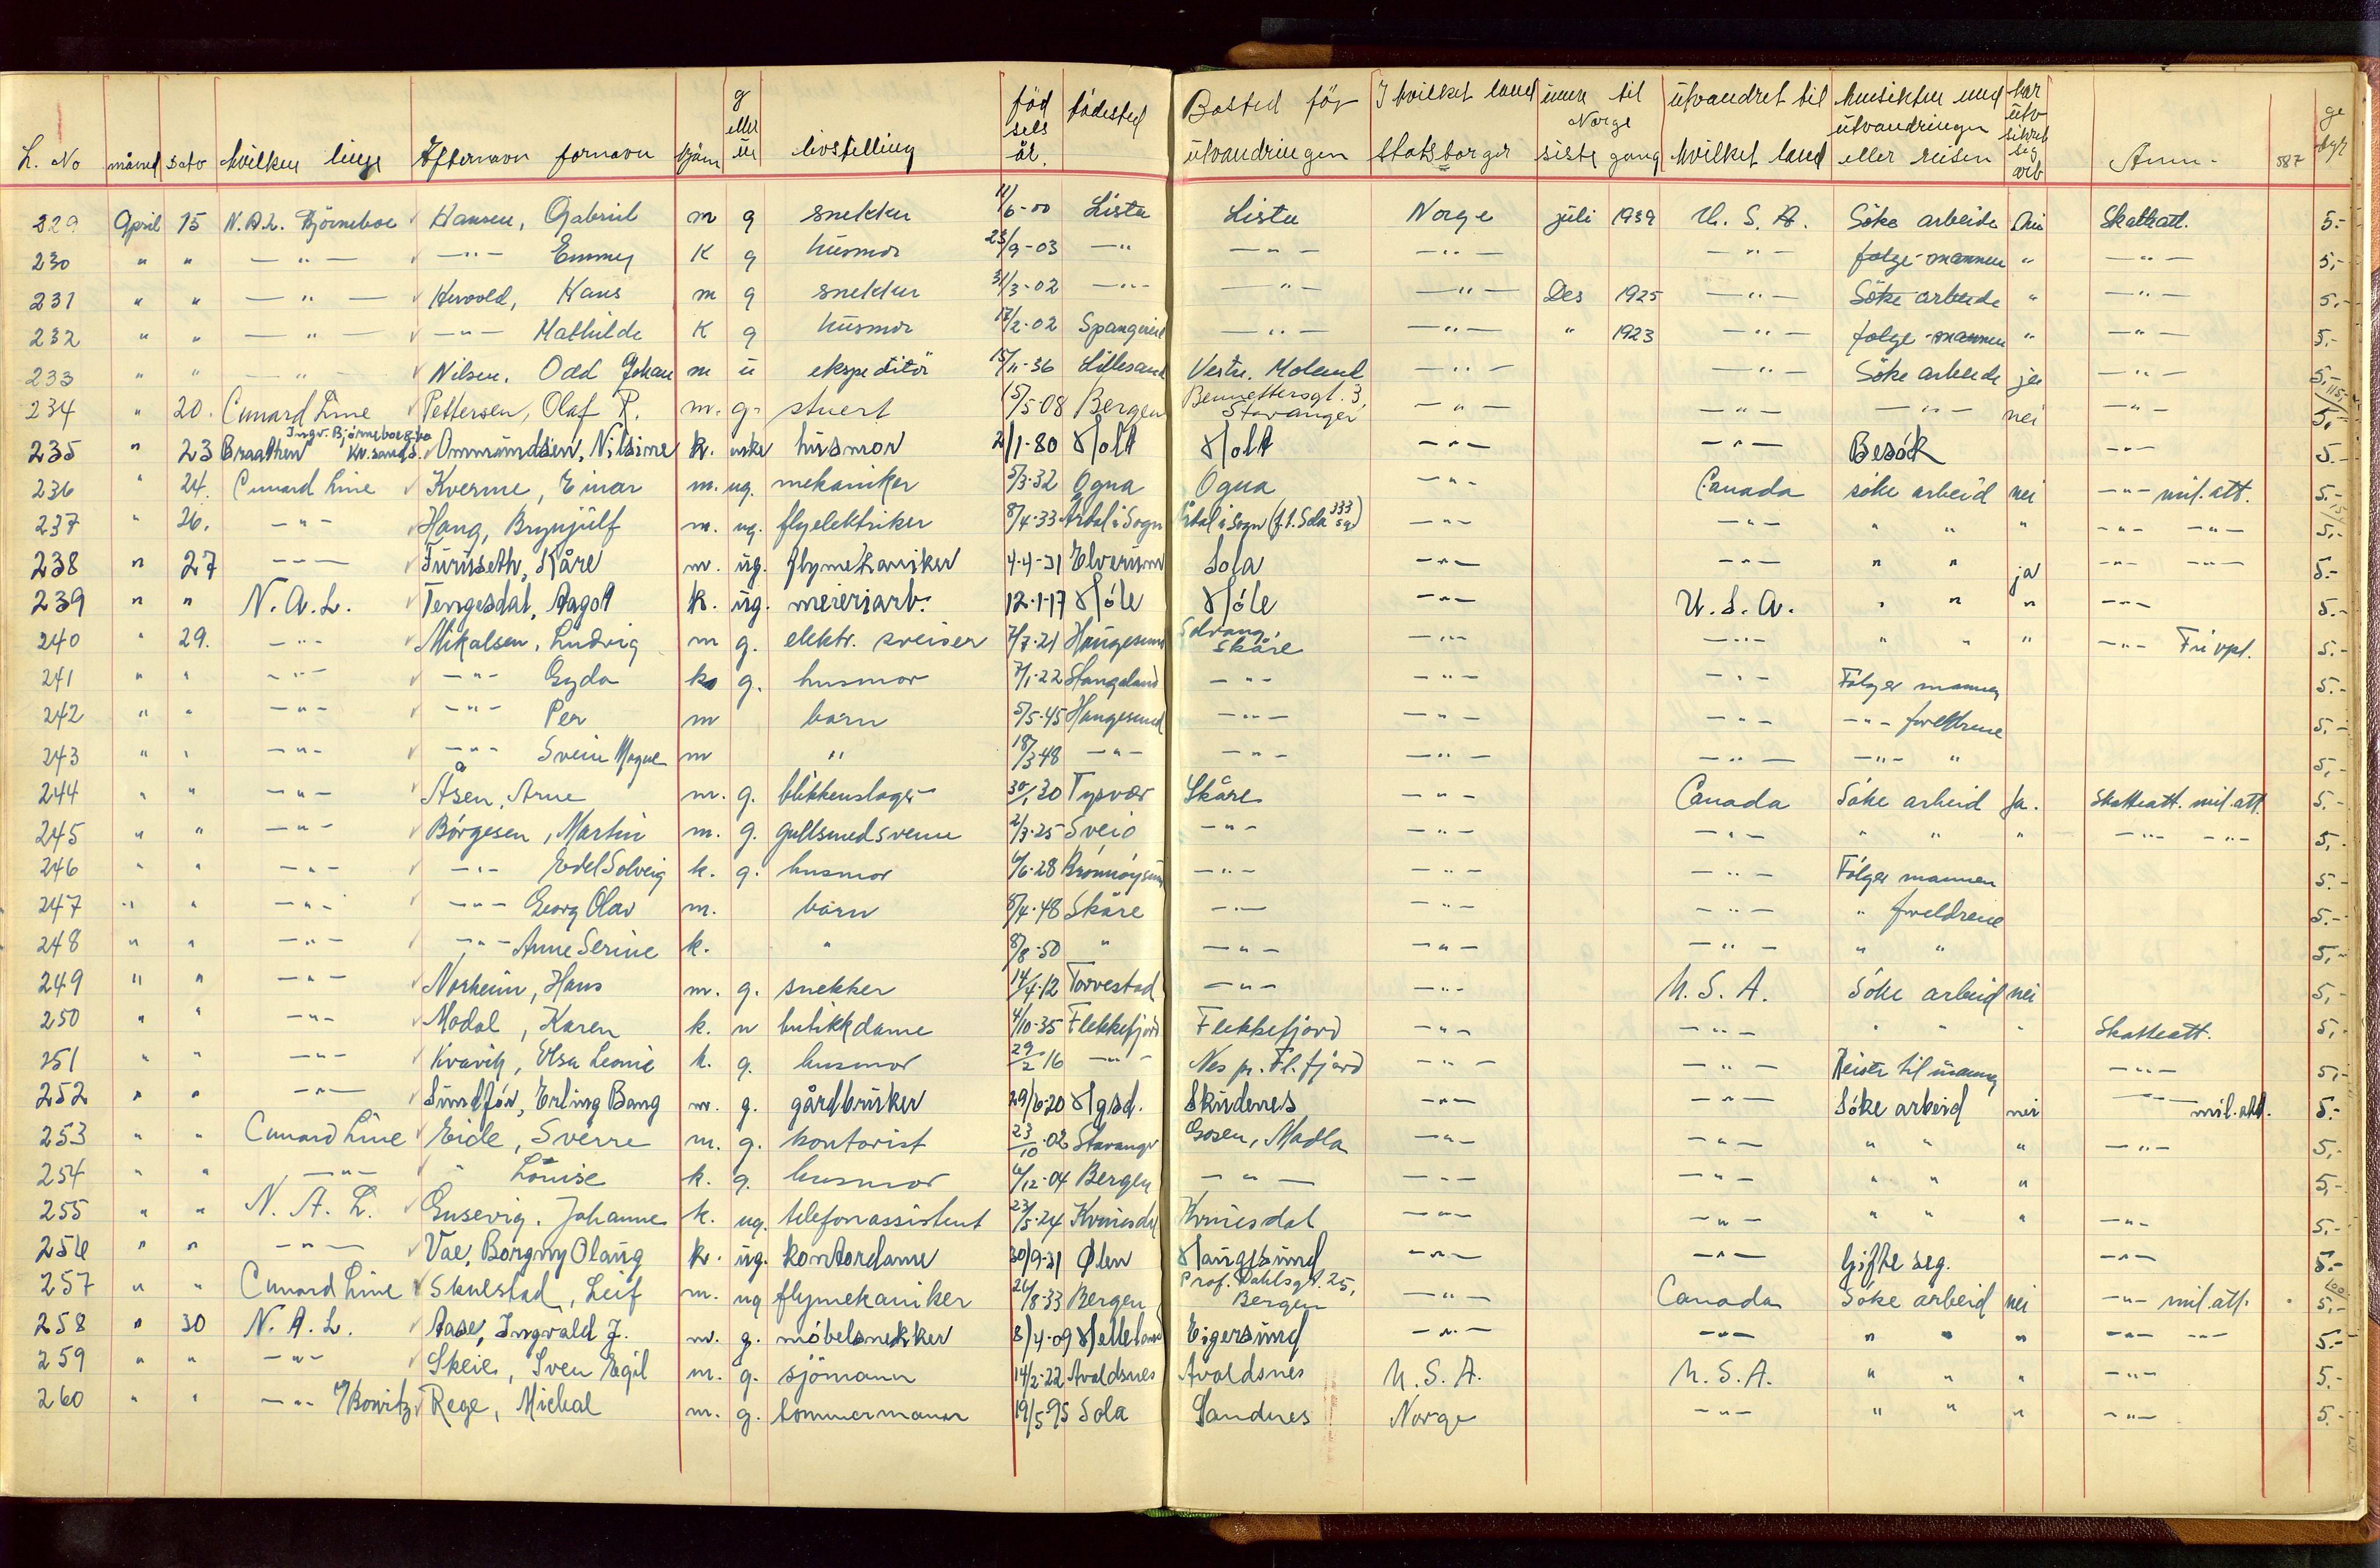 L. No måned dato hvilken linje Efternavn fornavn kjønn g eller u livstilling fødselsår. fødested Bosted før utvandringen I hvilket land statsborger inne til Norge siste gang utvandret til hvilket land hensikten med utvandringen eller reisen har utv sikret seg arb Anm. 587 gebyr
229 April 15 N.A.L. Bjørneboe Hansen, Gabriel m g snekker 11/6-00 Lista Lista Norge juli 1939 U.S.A. Söke arbeide Nei Skatteatt. 5.-
230 " " — " — — " — Emmy K g husmor 23/9-03 — " — " — — " — — " — følge mannen " — " — 5.-
231 " " — " — Hervold, Hans m g snekker 31/3-02 — " — — " — — " — Des 1925 — " — Söke arbeide " — " — 5.-
232 " " — " — — " — Mathilde K g husmor 17/2-02 Spangereid — " — — " — " 1923 — " — følge mannen " — " — 5.-
233 " " — " — Nilsen, Odd Johan m u ekspeditör 15/11-36 Lillesand Vestre Moland — " — — " — Söke arbeide ja — " — 5,- 115,-
234 " 20. Cunard Line Pettersen, Olaf P. m. g. stuert 15/5-08 Bergen Bennettersgt. 3, Stavanger — " — — " — — " — nei — " — 5,-
235 " 23 Braathen Ingv. Bjørneboe Kr.sand S. Ommundsen, Nilsine k. enke husmor 2/1-80 Holt Holt — " — — " — Besøk — " — 5.-
236 " 24. Cunard Line Kverme, Einar m. ug. mekaniker 5/3.32 Ogna Ogna — " — Canada söke arbeid nei — " — mil. att. 5.-
237 " 26. — " — Haug, Brynjulf m. ug. flyelektriker 8/4-33 Årdal i Sogn Årdal i Sogn (f.t. Sola 333 sq) — " — — " — " " " — " — — " — 5,-
238 " 27 — " — Furuseth, Kåre m. ug. flymekaniker 4-4-31 Elverum Sola — " — — " — " " ja — " — — " — 5.-
239 " " N.A.L. Tengesdal, Aagot k. ug. meieriarb. 12-1-17 Høle Høle — " — U.S.A. " " " — " — 5.-
240 " 29. — " — Mikalsen, Ludvig m g. elektr. sveiser 7/7-21 Haugesund Solvang, Skåre — " — — " — " " " — " — Fri vpl. 5.-
241 " " — " — — " — Gyda k g. husmor 7/1-22 Haugaland — " — — " — — " — Følger mannen 5.-
242 " " — " — — " — Per m barn 5/5-45 Haugesund — " — — " — — " — — " — foreldrene 5,-
243 " " — " — — " — Svein Magne m " 18/3-48 — " — — " — — " — — " — — " — " 5,-
244 " " — " — Åsen, Arne m. g. blikkenslager 30/1-30 Tysvær Skåre — " — Canada Søke arbeid Ja. Skatteatt. mil. att. 5,-
245 " " — " — Børgesen, Martin m. g. gullsmedsvenn 2/3-25 Sveio — " — — " — — " — " " " — " — — " — 5,-
246 " " — " — — " — Edel Solveig k. g. husmor 6/6-28 Brønnøysund — " — — " — — " — Følger mannen 5.-
247 " " — " — — " — Georg Olav m. barn 8/4-48 Skåre — " — — " — — " — " foreldrene 5.-
248 " " — " — — " — Anne Serine k. " 8/8-50 " — " — — " — — " — " " 5,-
249 " " — " — Norheim, Hans m. g. snekker 14/4-12 Torvestad — " — — " — U.S.A. Søke arbeid nei 5,-
250 " " — " — Modal, Karen k. u butikkdame 4/10-35 Flekkefjord Flekkefjord — " — — " — " " " Skatteatt. 5,-
251 " " — " — Kvavik, Elsa Leonie k. g. husmor 29/2-16 — " — Nes pr. Fl.fjord — " — — " — Reiser til mann — " — 5,-
252 " " — " — Sundfør, Erling Bang m. g. gårdbruker 29/6-20 Hgsd. Skudenes — " — — " — Søke arbeid nei — " — mil. att. 5.-
253 " " Cunard Line Eide, Sverre m. g. kontorist 23/10-02 Stavanger Gosen, Madla — " — — " — " " " — " — 5,-
254 " " — " — " Louise k. g. husmor 6/12-04 Bergen — " — — " — — " — " " " 5,-
255 " " N.A.L. Gusevig, Johanne k. ug. telefonassistent 23/5-24 Kvinesdal Kvinesdal — " — — " — " " " — " — 5,-
256 " " — " — Våe, Borgny Olaug k. ug. kontordame 30/9-31 Ølen Haugesund — " — — " — Gifte seg. — " — 5.-
257 " " Cunard Line Skulstad, Leif m. ug flymekaniker 26/8-33 Bergen Prof. Dahlsgt. 25, Bergen — " — Canada Søke arbeid nei — " — mil. att. 5,- 100
258 " 30 N.A.L. Aase, Ingvald J. m. g. møbelsnekker 8/4-09 Helleland Eigersund — " — — " — " " " — " — — " — 5.-
259 " " — " — Skeie, Sven Egil m. g. sjömann 14/2-22 Avaldsnes Avaldsnes U.S.A. U.S.A. " " " — " — 5.-
260 " " — " — v/Bowitz Rege, Michal m. g. tømmermann 19/5-95 Sola Sandnes Norge — " — " " " — " — 5.-